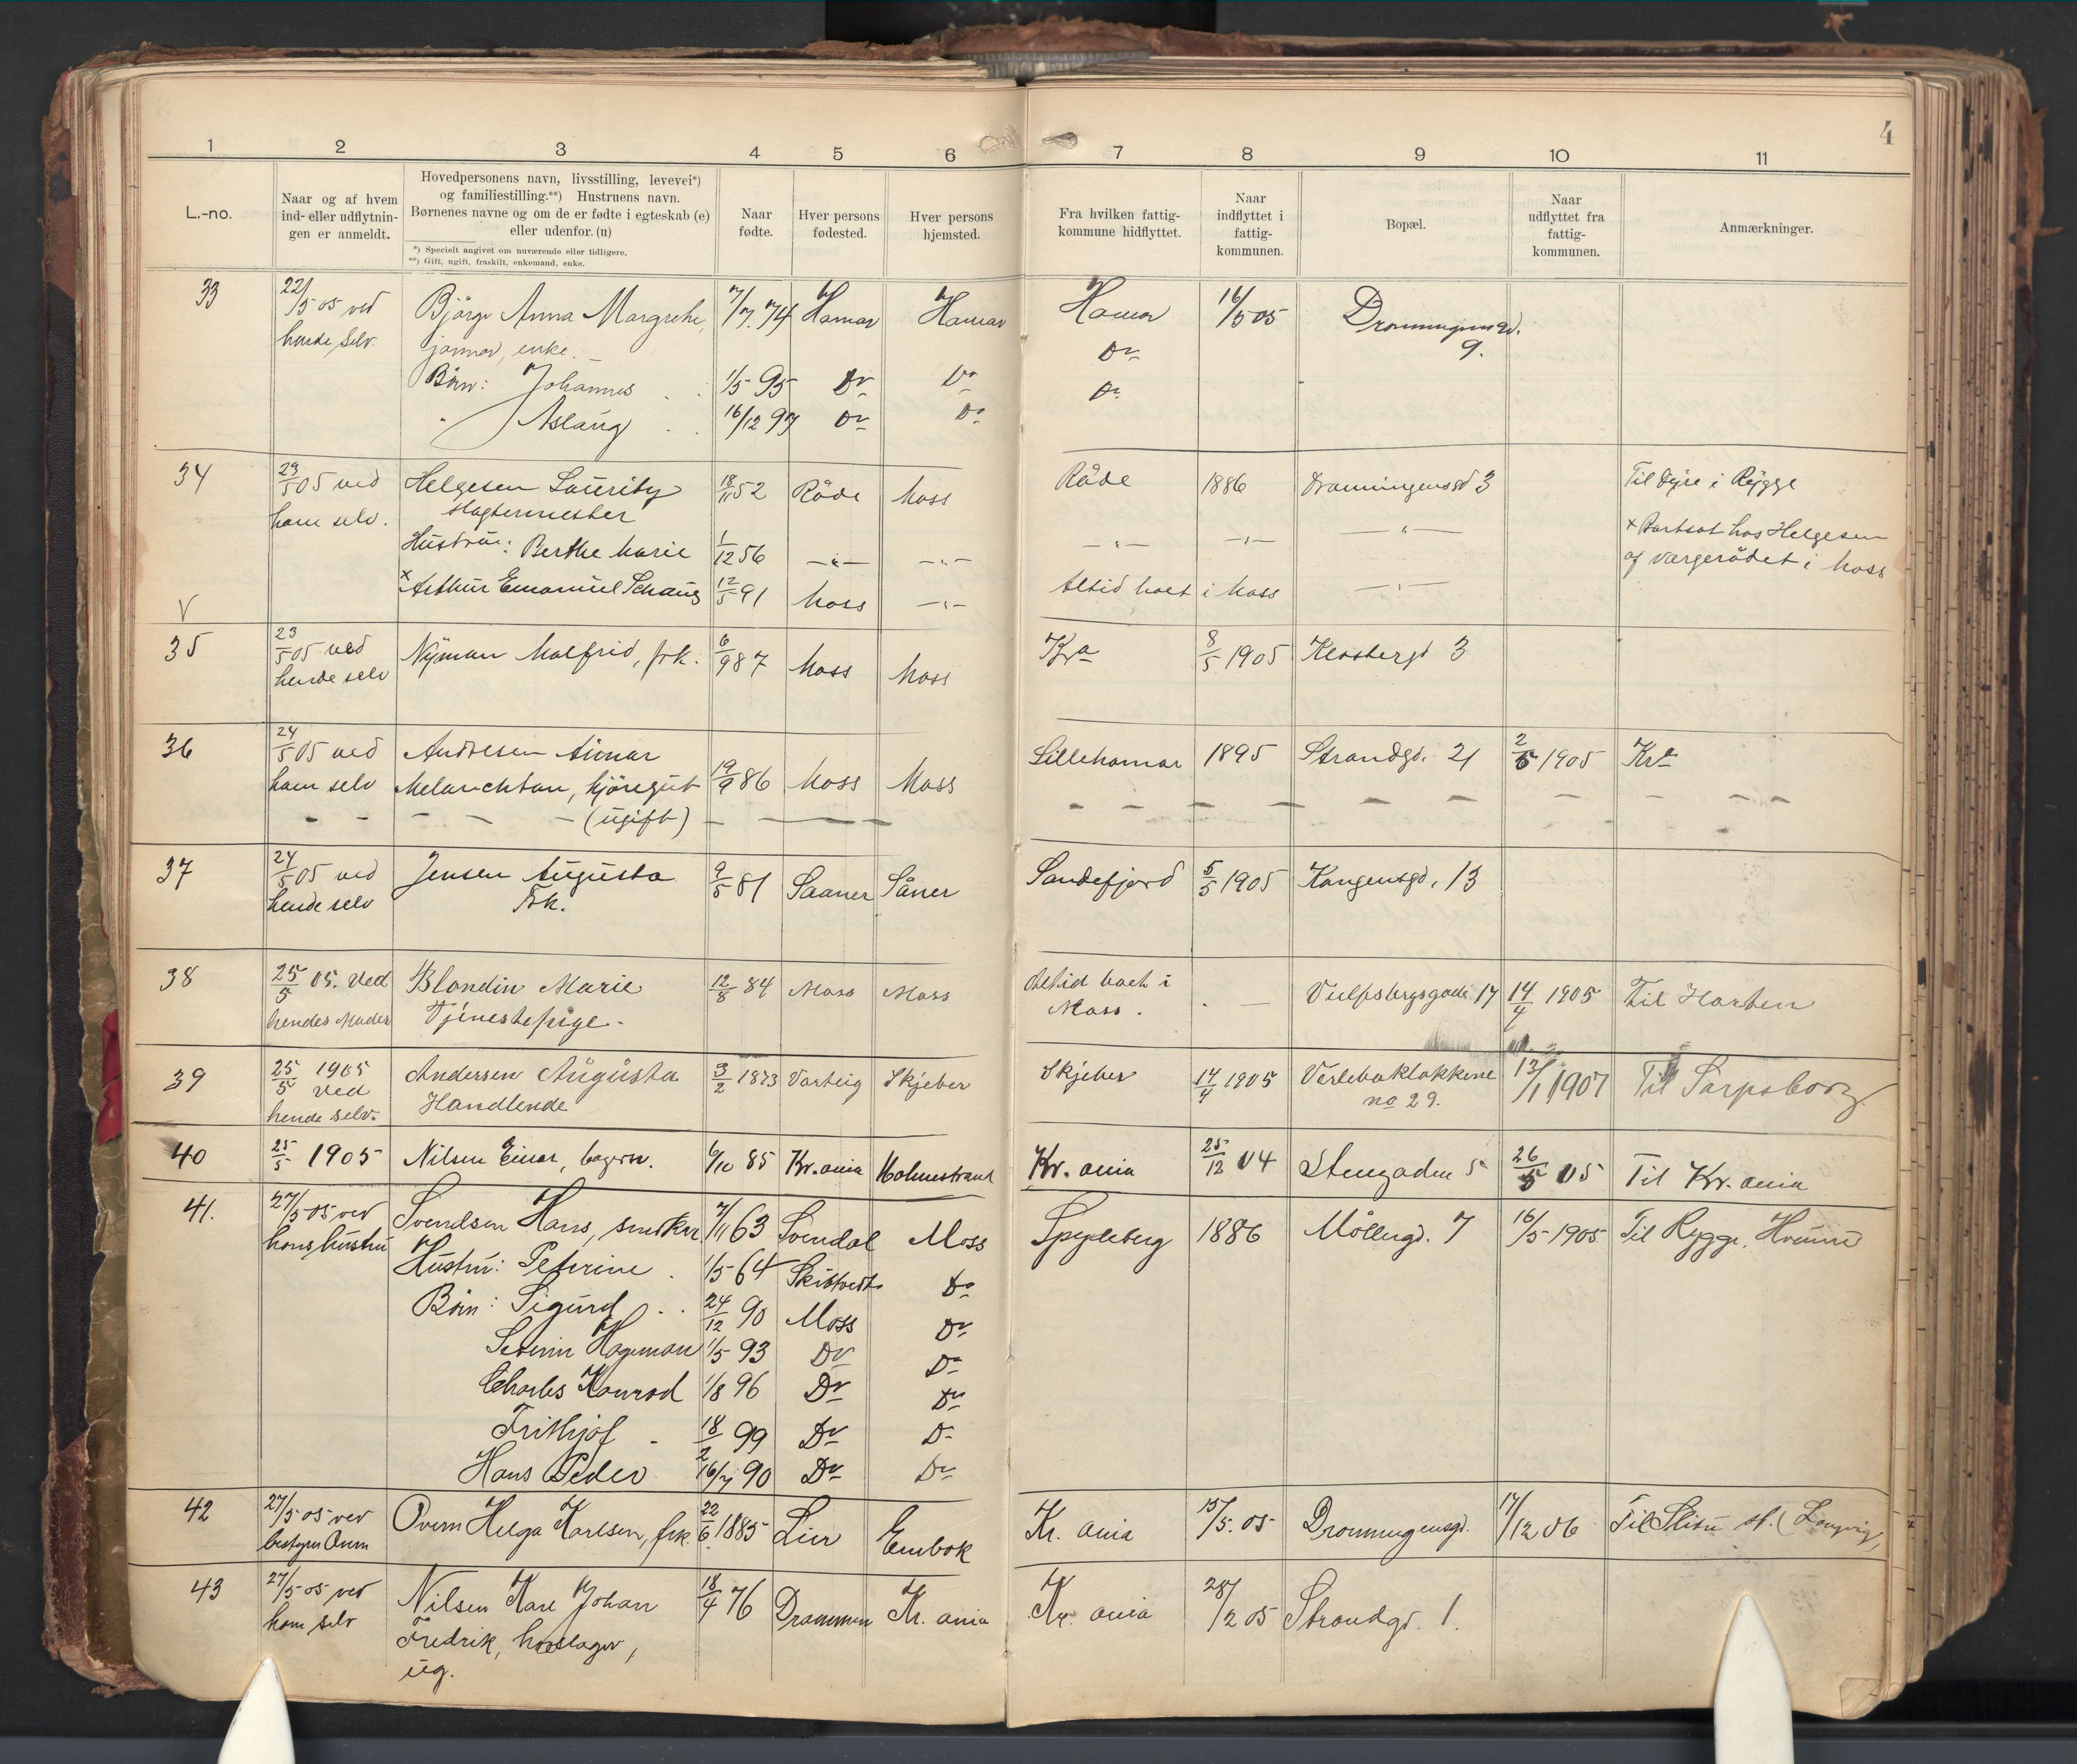 4
1 2 3 4 5 6 7 8 9 10 11
L.-no.
Naar og af hvem
ind- eller udflytnin-
gen er anmeldt.
Hovedpersonens navn, livsstilling, levevei*)
og familiestilling.**) Hustruens navn.
Børnenes navne og om de er fødte i egteskab (e)
eller udenfor. (u)
*) Specielt angivet om nuværende eller tidligere.
**) Gift, ugift, fraskilt, enkemand, enke.
Naar
fødte.
Hver persons
fødested.
Hver persons
hjemsted.
Fra hvilken fattig-
kommune hidflyttet.
Naar
indflyttet i
fattig-
kommunen.
Bopæl.
Naar
udflyttet fra
fattig-
kommunen.
Anmærkninger.
33 22/5 05 ved Bjørge Anna Margrethe, 7/7. 74 Hamar Hamar Hamar 16/5 05 Dronningensgd.
hende selv. enke. Do 9.
Børn: Johannes 1/5 95 Do Do Do
" Aslaug 16/12 97 Do Do
34 23/5 05 ved Helgesen Lauritz 18/11 52 Råde Moss Råde 1886 Dronningensgd 3 Til Dyre i Rygge
ham selv. slagtermester
Hustru: Berthe Marie 1/12 56 —"— —"— —"— —"— —"— × Bortsat hos Helgesen
af værgerådet i Moss
× Arthur Emanuel Schaug 12/5 91 Moss —"— Altid boet i Moss —"—
V
35 23/5 05 ved Nyman Malfrid, frk. 6/9 87 Moss Moss Kra 8/5 1905 Klosbergd 3
hende selv
36 24/5 05 ved Andresen Einar Lillehamar 1895 Strandgd. 21 2/6 1905 Kra
ham selv Melanchton, kjøregut 19/9 86 Moss Moss
(ugift)
37 24/5 05 ved Jensen Augusta 9/5 81 Saaner Såner Sandefjord 5/5 1905 Kongensgd. 13
hende selv Frk.
38 25/5 05. Ved Blondin Marie 12/8 84 Moss Moss Altid boet i — Vulfsbergsgade 17 14/4 1905 Til Horten
hendes Moder Tjenestepige - Moss.
39 25/5 1905 Andersen Augusta 3/2 1873 Varteig Skjeber Skjeber 14/4 1905 Verlebakløkkene 13/1 1907 Til Sarpsborg
ved Handlende no 29.
hende selv.
40 25/5 1905 Nilsen Einar, bagersv. 6/10 85 Kr.ania Holmestrand Kr. ania 25/12 04 Stengaden 5 26/5 05 Til Kr. ania
41. 27/5 05 ved Svendsen Hans, snedker 7/11 63 Svendal Moss Spydeberg 1886 Møllergd. 7 16/5 1905 Til Rygge,
hans hustru Hustru: Petrine 1/5 64 Skibtvedt Do
Børn: Sigurd 24/12 90 Moss Do
Severin Hageman 1/5 93 Do Do
Charles Konrad 1/8 96 Do Do
Frithjof 18/2 99 Do Do
Hans Peder 16/7 90 Do Do
42 27/5 05 ved Helga Karlsen, frk. 22/6. 1885 Lier Enebak Kr. ania 15/5. 05 Dronningensgd. 17/12 06 Til Slitu st.
bestyrer
43 27/5 05 ved Nilsen Karl Johan 18/4 76 Drammen Kr. ania Kr. ania 28/2 05 Strandgd. 1.
ham selv Fredrik, hovslager,
ug.